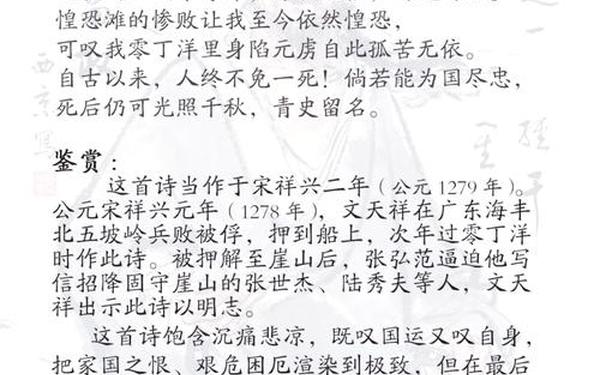 惶恐滩的惨败让我至今依然惶恐，
可叹我零丁洋里身陷元虏自此孤苦无依。
自古以来，人终不免一死！倘若能为国尽忠，
死后仍可光照千秋，青史留名。
鉴赏：
这首诗当作于宋祥兴二年（公元1279年）。
公元宋祥兴元年（1278年），文天祥在广东海丰
北五坡岭兵败被俘，押到船上，次年过零丁洋
时作此诗。被押解至崖山后，张弘范逼迫他写
信招降固守崖山的张世杰、陆秀夫等人，文天
祥出示此诗以明志。
这首诗饱含沉痛悲凉，既叹国运又叹自身，
把家国之恨、艰危困厄渲染到极致，但在最后